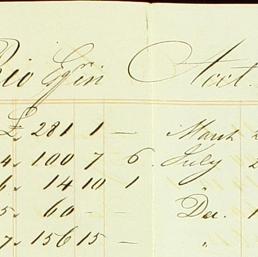 Rio Effin Acct.
£ 281 1 — March 2
4. 100 7 6. July 2
6. 14 10 1 "
5. 60 — Dec. 1
7. 156 15 — "